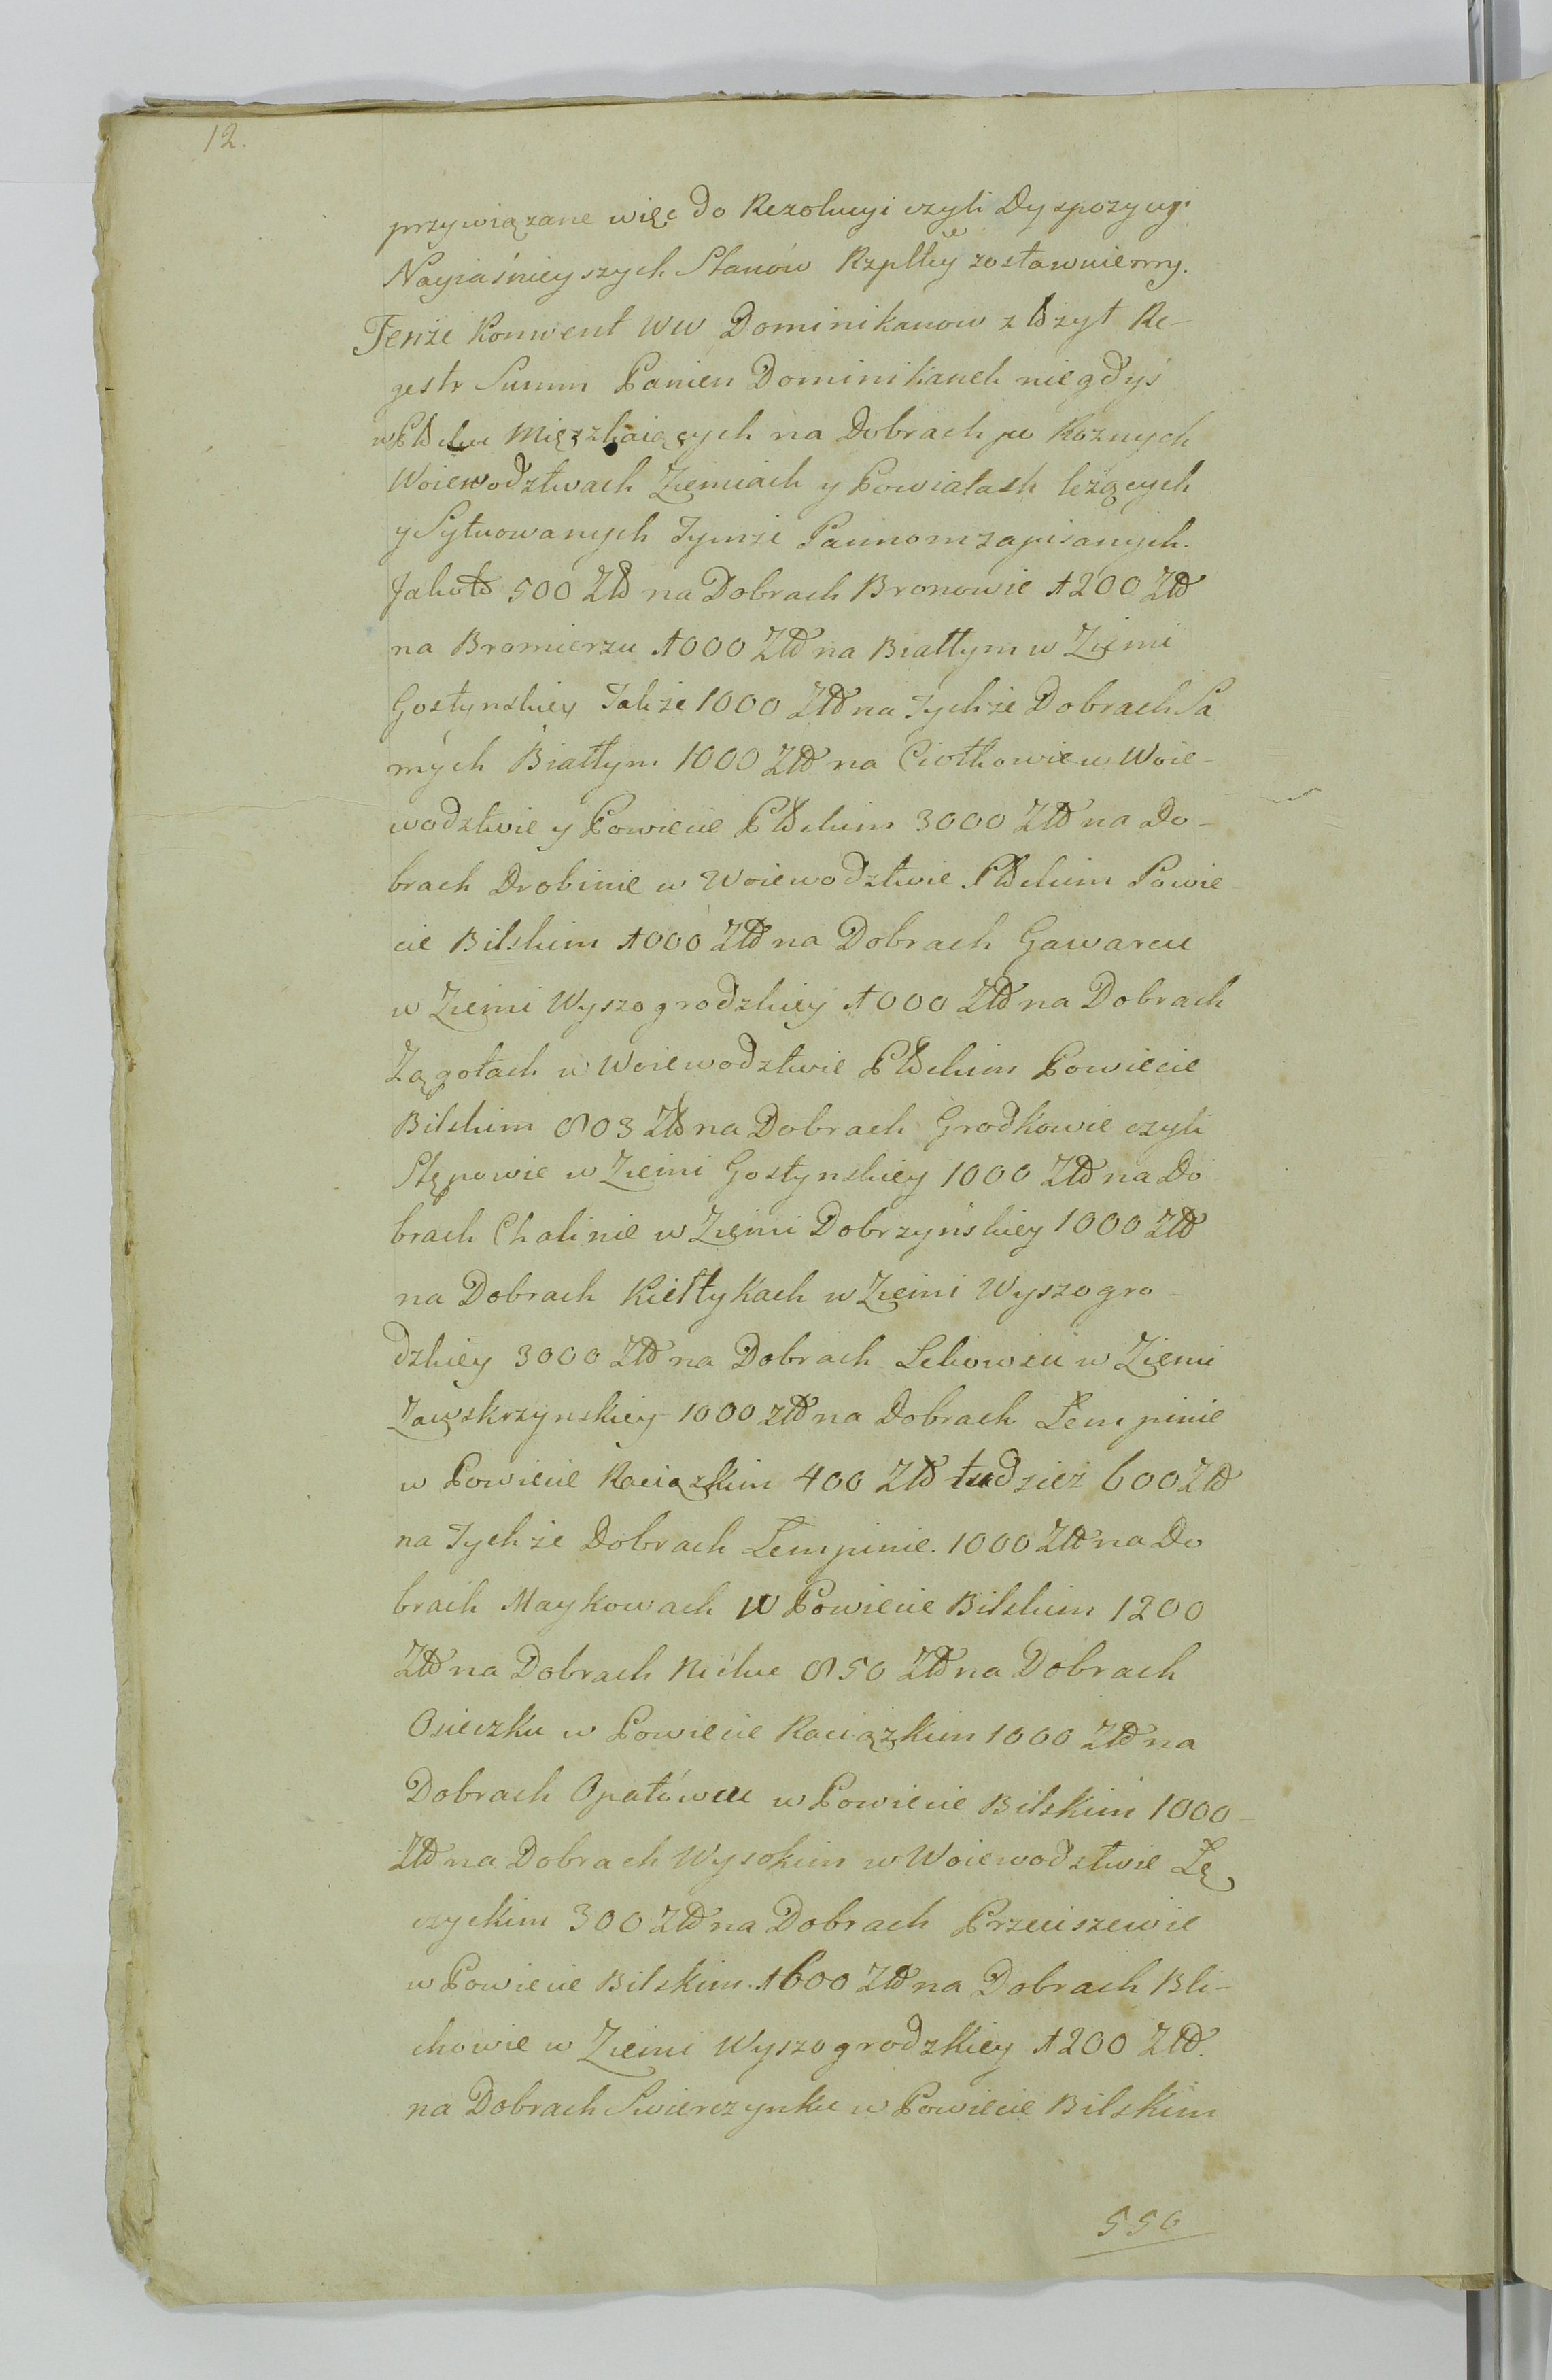 12.
przywiązane więc do Rezolucyi czyli Dyspozycyi
Nayiaśnieyszych Stanów Rzpltey zostawuiemy.
Tenże Konwent WW Dominikanow złożył Re-
gestr Summ Panien Dominikanek niegdyś
w Płocku Mięszkaiących na Dobrach po Roznych
Woiewodztwach Ziemiach y Powiatach leżących
y Sytuowanych Tymże Pannom zapisanych.
Jakoto 500 Złł na Dobrach Bronowie 1200 Złł
na Bromierzu 1000 Złł na Białłym w Ziemi
Gostynskiey Także 1000 Złł na Tychże Dobrach Sa
mych Białłym 1000 Złł na Ciołkowie w Woie-
wodztwie y Powiecie Płłckim 3000 Złł na Do-
brach Drobinie w Woiewodztwie Płłckim Powie
cie Bilskim 1000 Złł na Dobrach Gawarcu
w Ziemi Wyszogrodzkiey 1000 Złł na Dobrach
Zągotach w Woiewodztwie Płłckim Powiecie
Bilskim 803 Złł na Dobrach Grodkowie czyli
Stępowie w Ziemi Gostynskiey 1000 Złł na Do
brach Chalinie w Ziemi Dobrzyńskiey 1000 Złł
na Dobrach Kiełtykach w Ziemi Wyszogro-
dzkiey 3000 Złł na Dobrach Lekowcu w Ziemi
Zawskrzynskiey 1000 złł na Dobrach Łempinie
w Powiecie Raciązkim 400 Złł tudzież 600 Złł
na Tychże Dobrach Łempinie. 1000 Złł na Do
brach Maykowach w Powiecie Bilskim 1200
Złł na Dobrach 850 Złł na Dobrach
Osieczku w Powiecie Raciązkim 1000 Złł na
Dobrach Opatówcu w Powiecie Bilskim 1000-
Złł na Dobrach Wysokim w Woiewodztwie Łę
czyckim 300 Złł na Dobrach Przeciszewie
w Powiecie Bilskim. 1600 Złł na Dobrach Bli-
chowie w Ziemi Wyszogrodzkiey 1200 Złł.
na Dobrach Swierczynku w Powiecie Bilskim
556